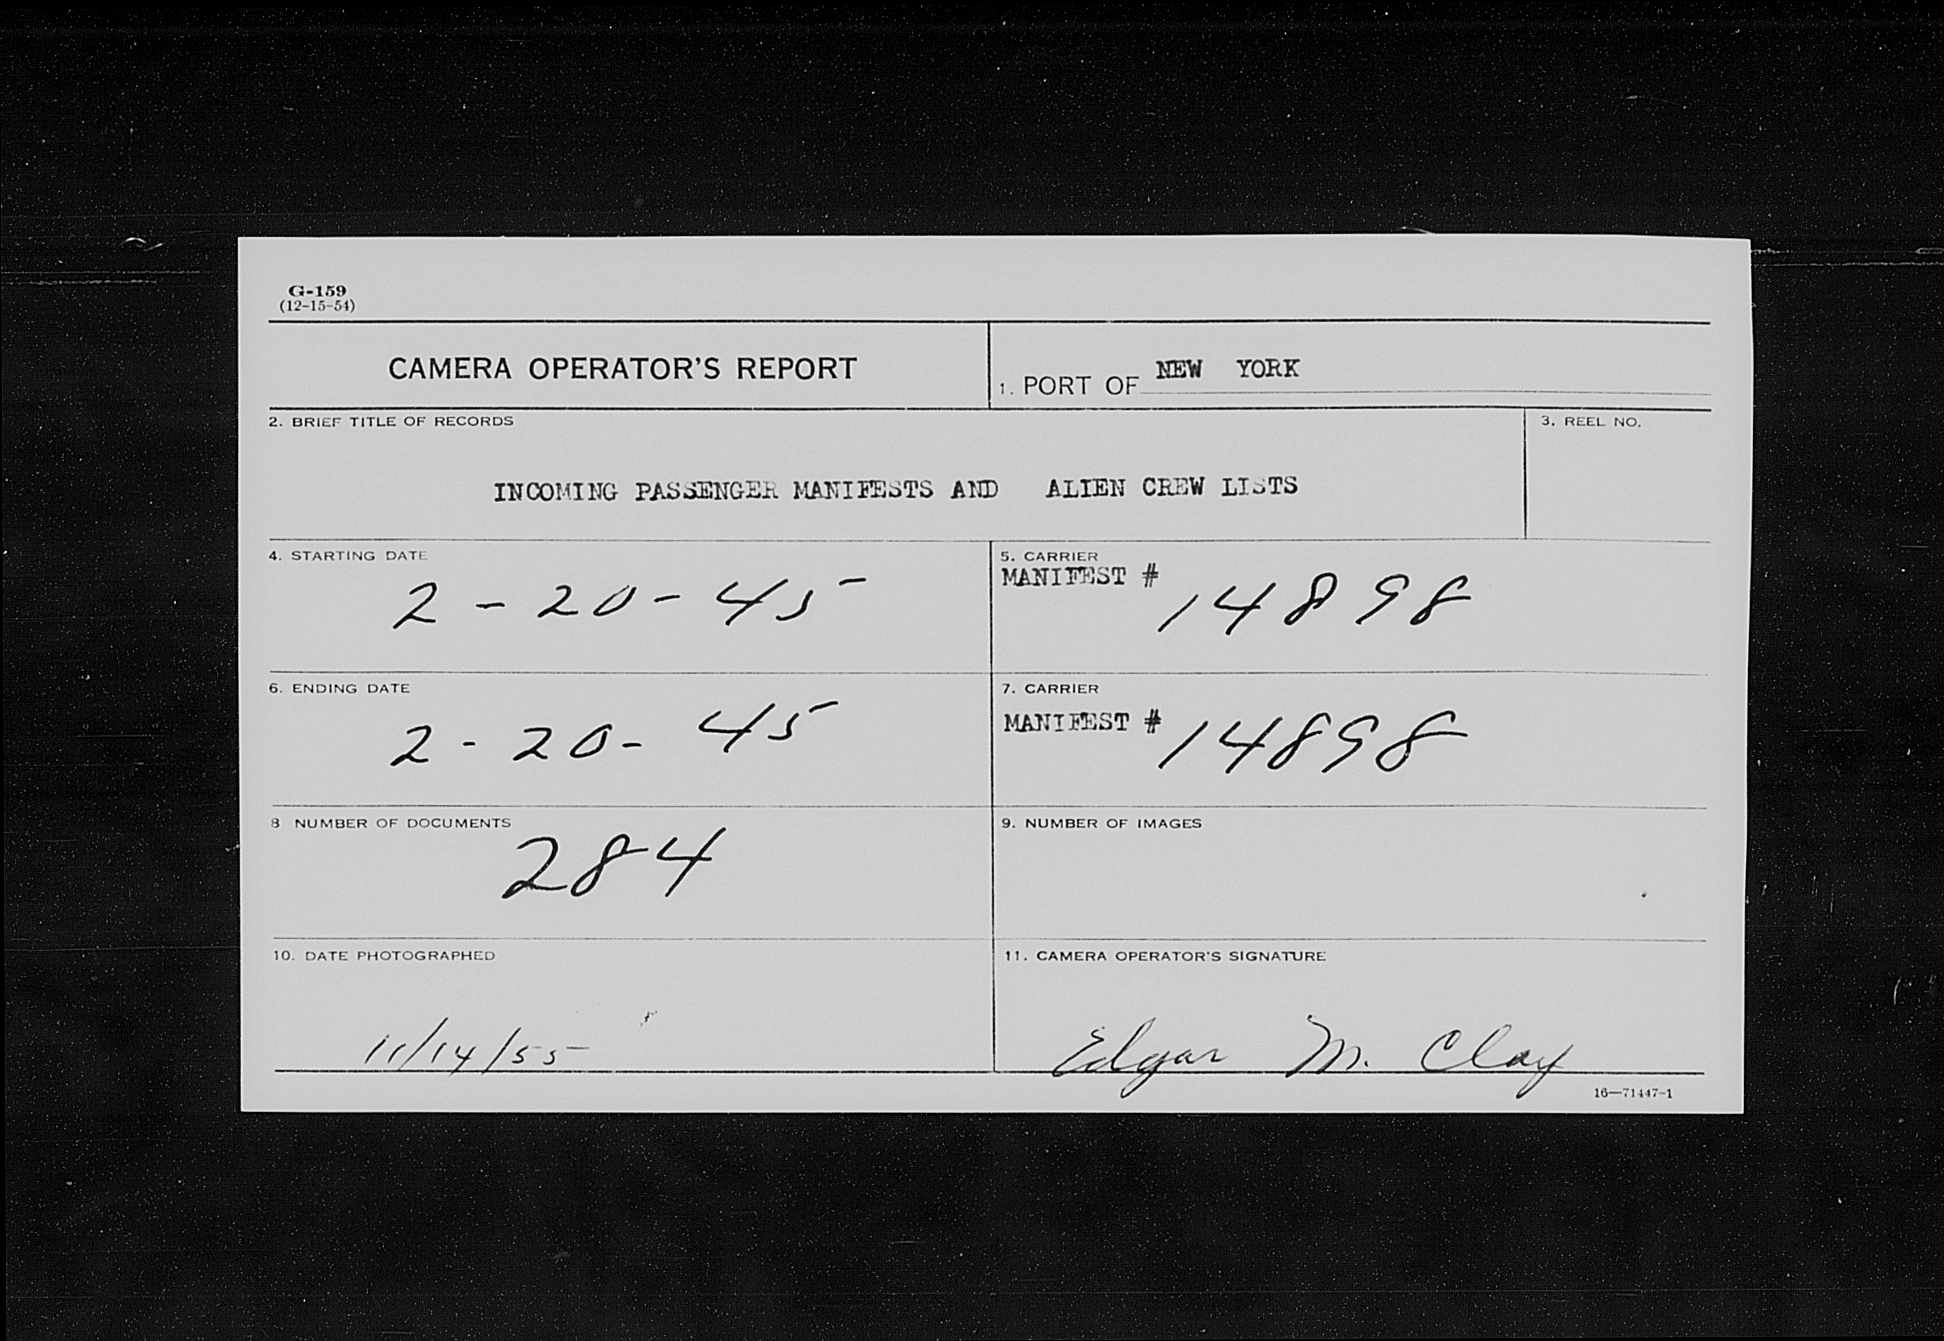 G-159
(12-15-54)
CAMERA OPERATOR'S REPORT
1. PORT OF NEW YORK
2. BRIEF TITLE OF RECORDS
3. REEL NO.
INCOMING PASSENGER MANIFESTS AND ALIEN CREW LISTS
4. STARTING DATE
2-20-45
5. CARRIER
MANIFEST # 14898
6. ENDING DATE
2-20-45
7. CARRIER
MANIFEST # 14898
8 NUMBER OF DOCUMENTS
284
9. NUMBER OF IMAGES
10. DATE PHOTOGRAPHED
11/14/55
11. CAMERA OPERATOR'S SIGNATURE
Edgar M. Clay
16—71447-1